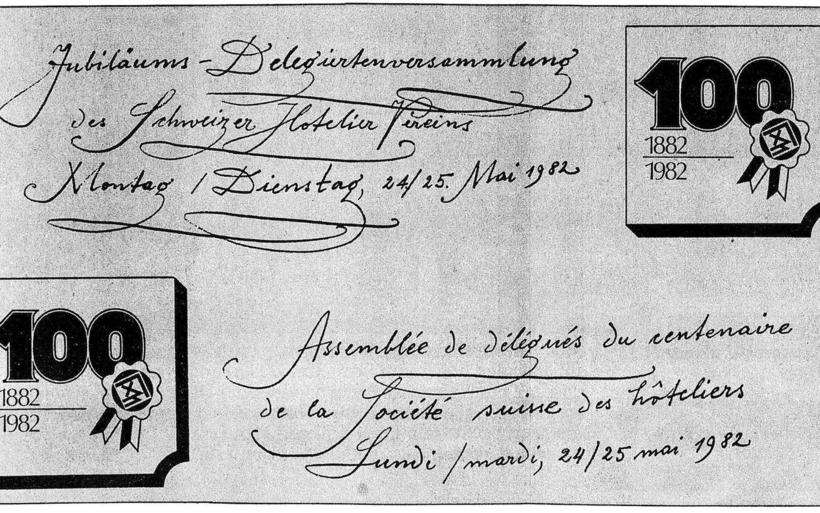 Jubiläums-Delegiertenversammlung
des Schweizer Hotelier Vereins
Montag / Dienstag, 24/25. Mai 1982
100
1882
1982
100
1882
1982
Assemblée de délégués du centenaire
de la Société suisse des hôteliers
Lundi / mardi, 24/25 mai 1982